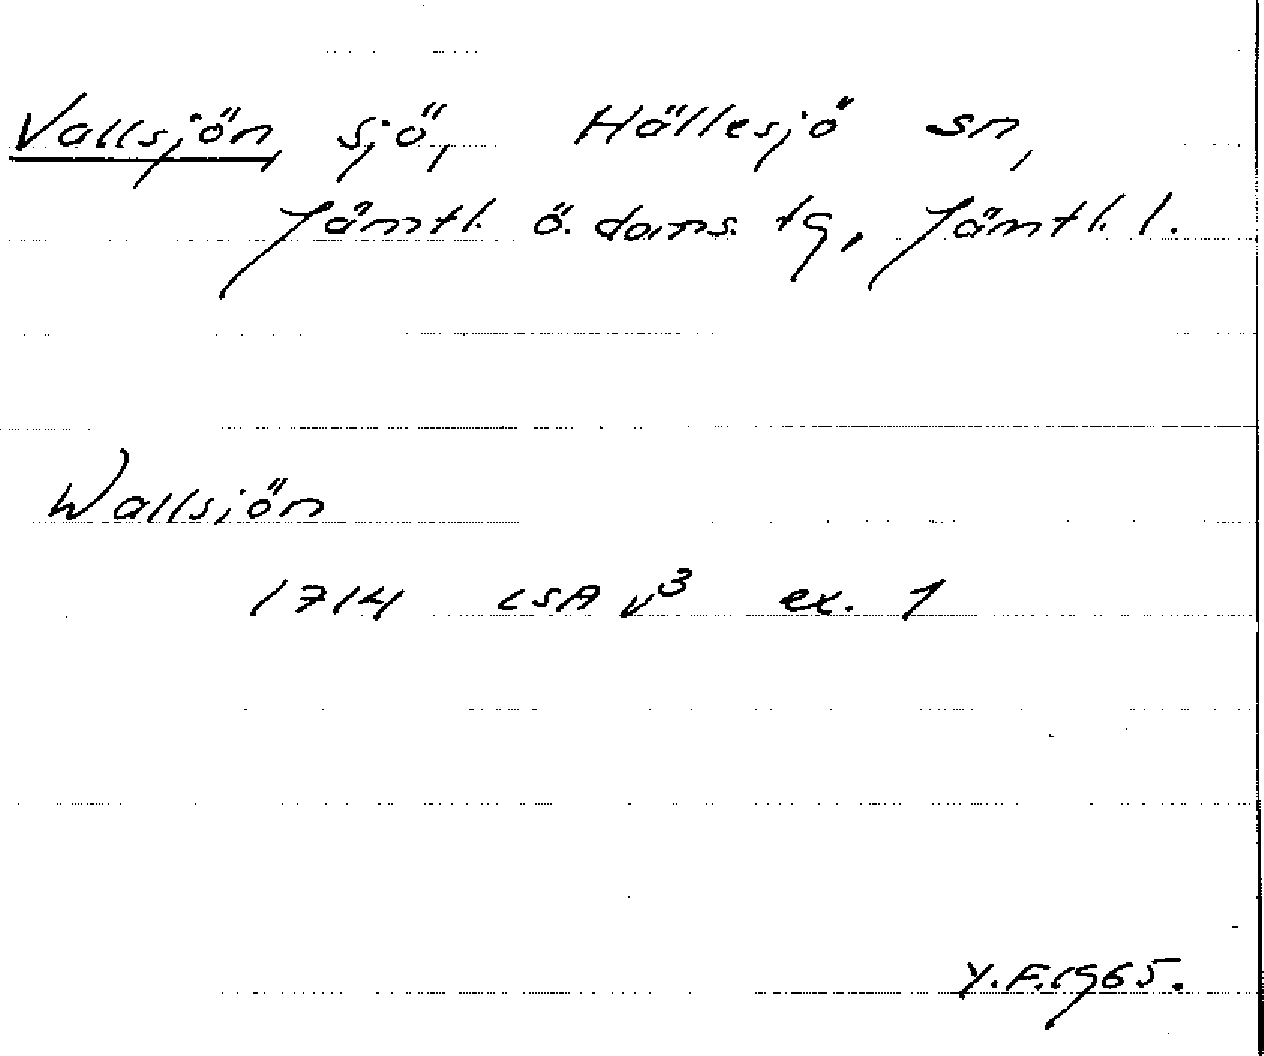 Vallsjön, sjö, Hällesjö sn,
Jämtl. ö. doms. tg, Jämtl. l.
Wallsjön
1714 LSA V³ ex. 1
Y.F. 1965.